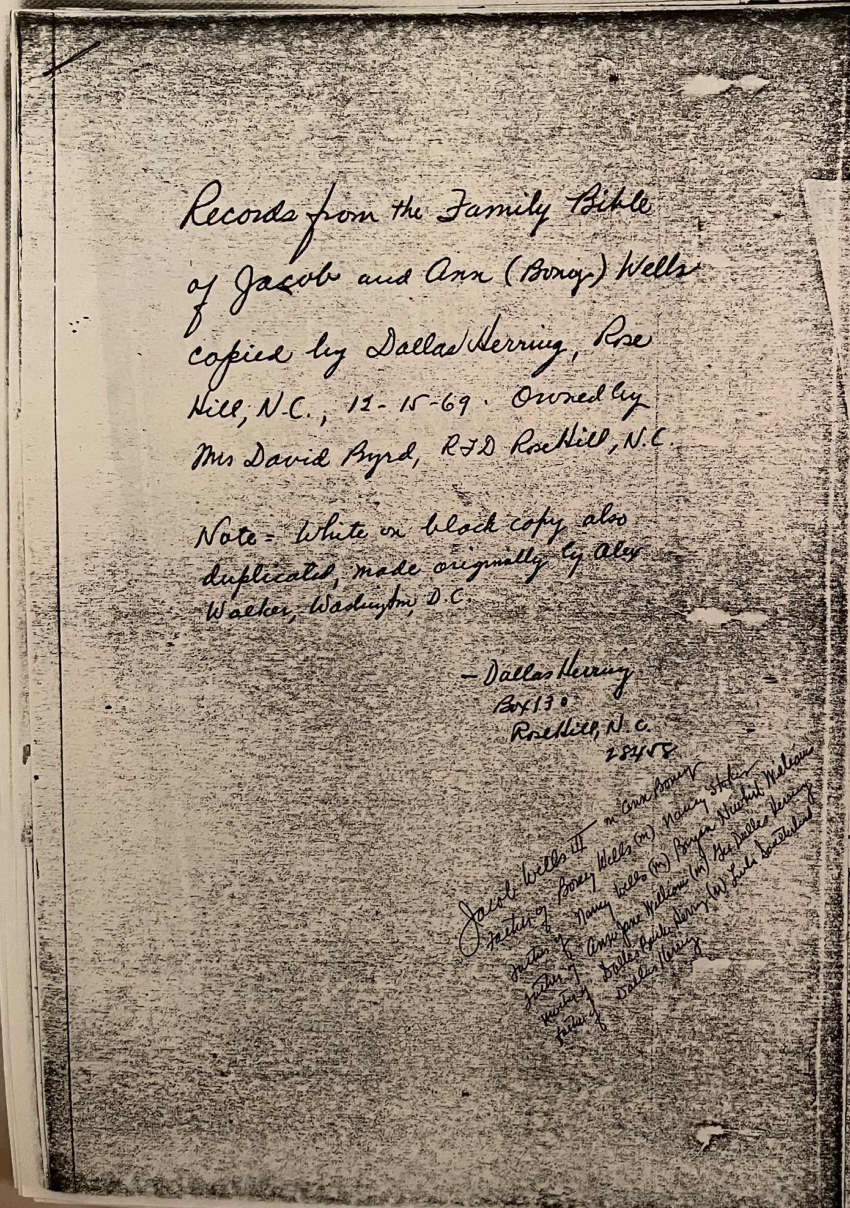 Records from the Family Bible
of Jacob and Ann (Boney) Wells
copied by Dallas Herring, Rose
Hill, N.C., 12-15-69. Owned by
Mrs David Byrd, RFD Rose Hill, N.C.
Note = White on black copy also
duplicated, made originally by Alex
Walker, Washington, D.C.
- Dallas Herring
Box 130
Rose Hill, N.C.
28458
Jacob Wells III m Ann Boney
Father of Boney Wells (m) Nancy
father of Nancy Wells (m) Bryan Williams
Ann Jane Williams (m) Dallas Herring
mother of Dallas Herring (m)
father of Dallas Herring